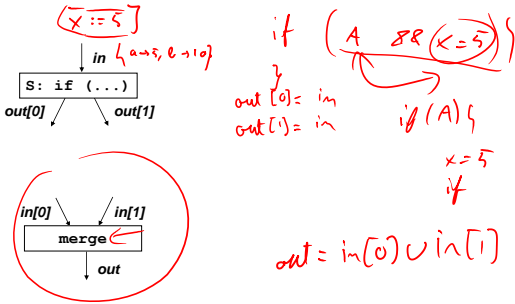 x := 5
in { a→5, b→10}
S: if (...)
out[0] out[1]
in[0] in[1]
merge
out
if (A && (x=5)) {
}
out[0] = in
out[1] = in
if (A) {
x=5
if
out = in[0] ∪ in[1]